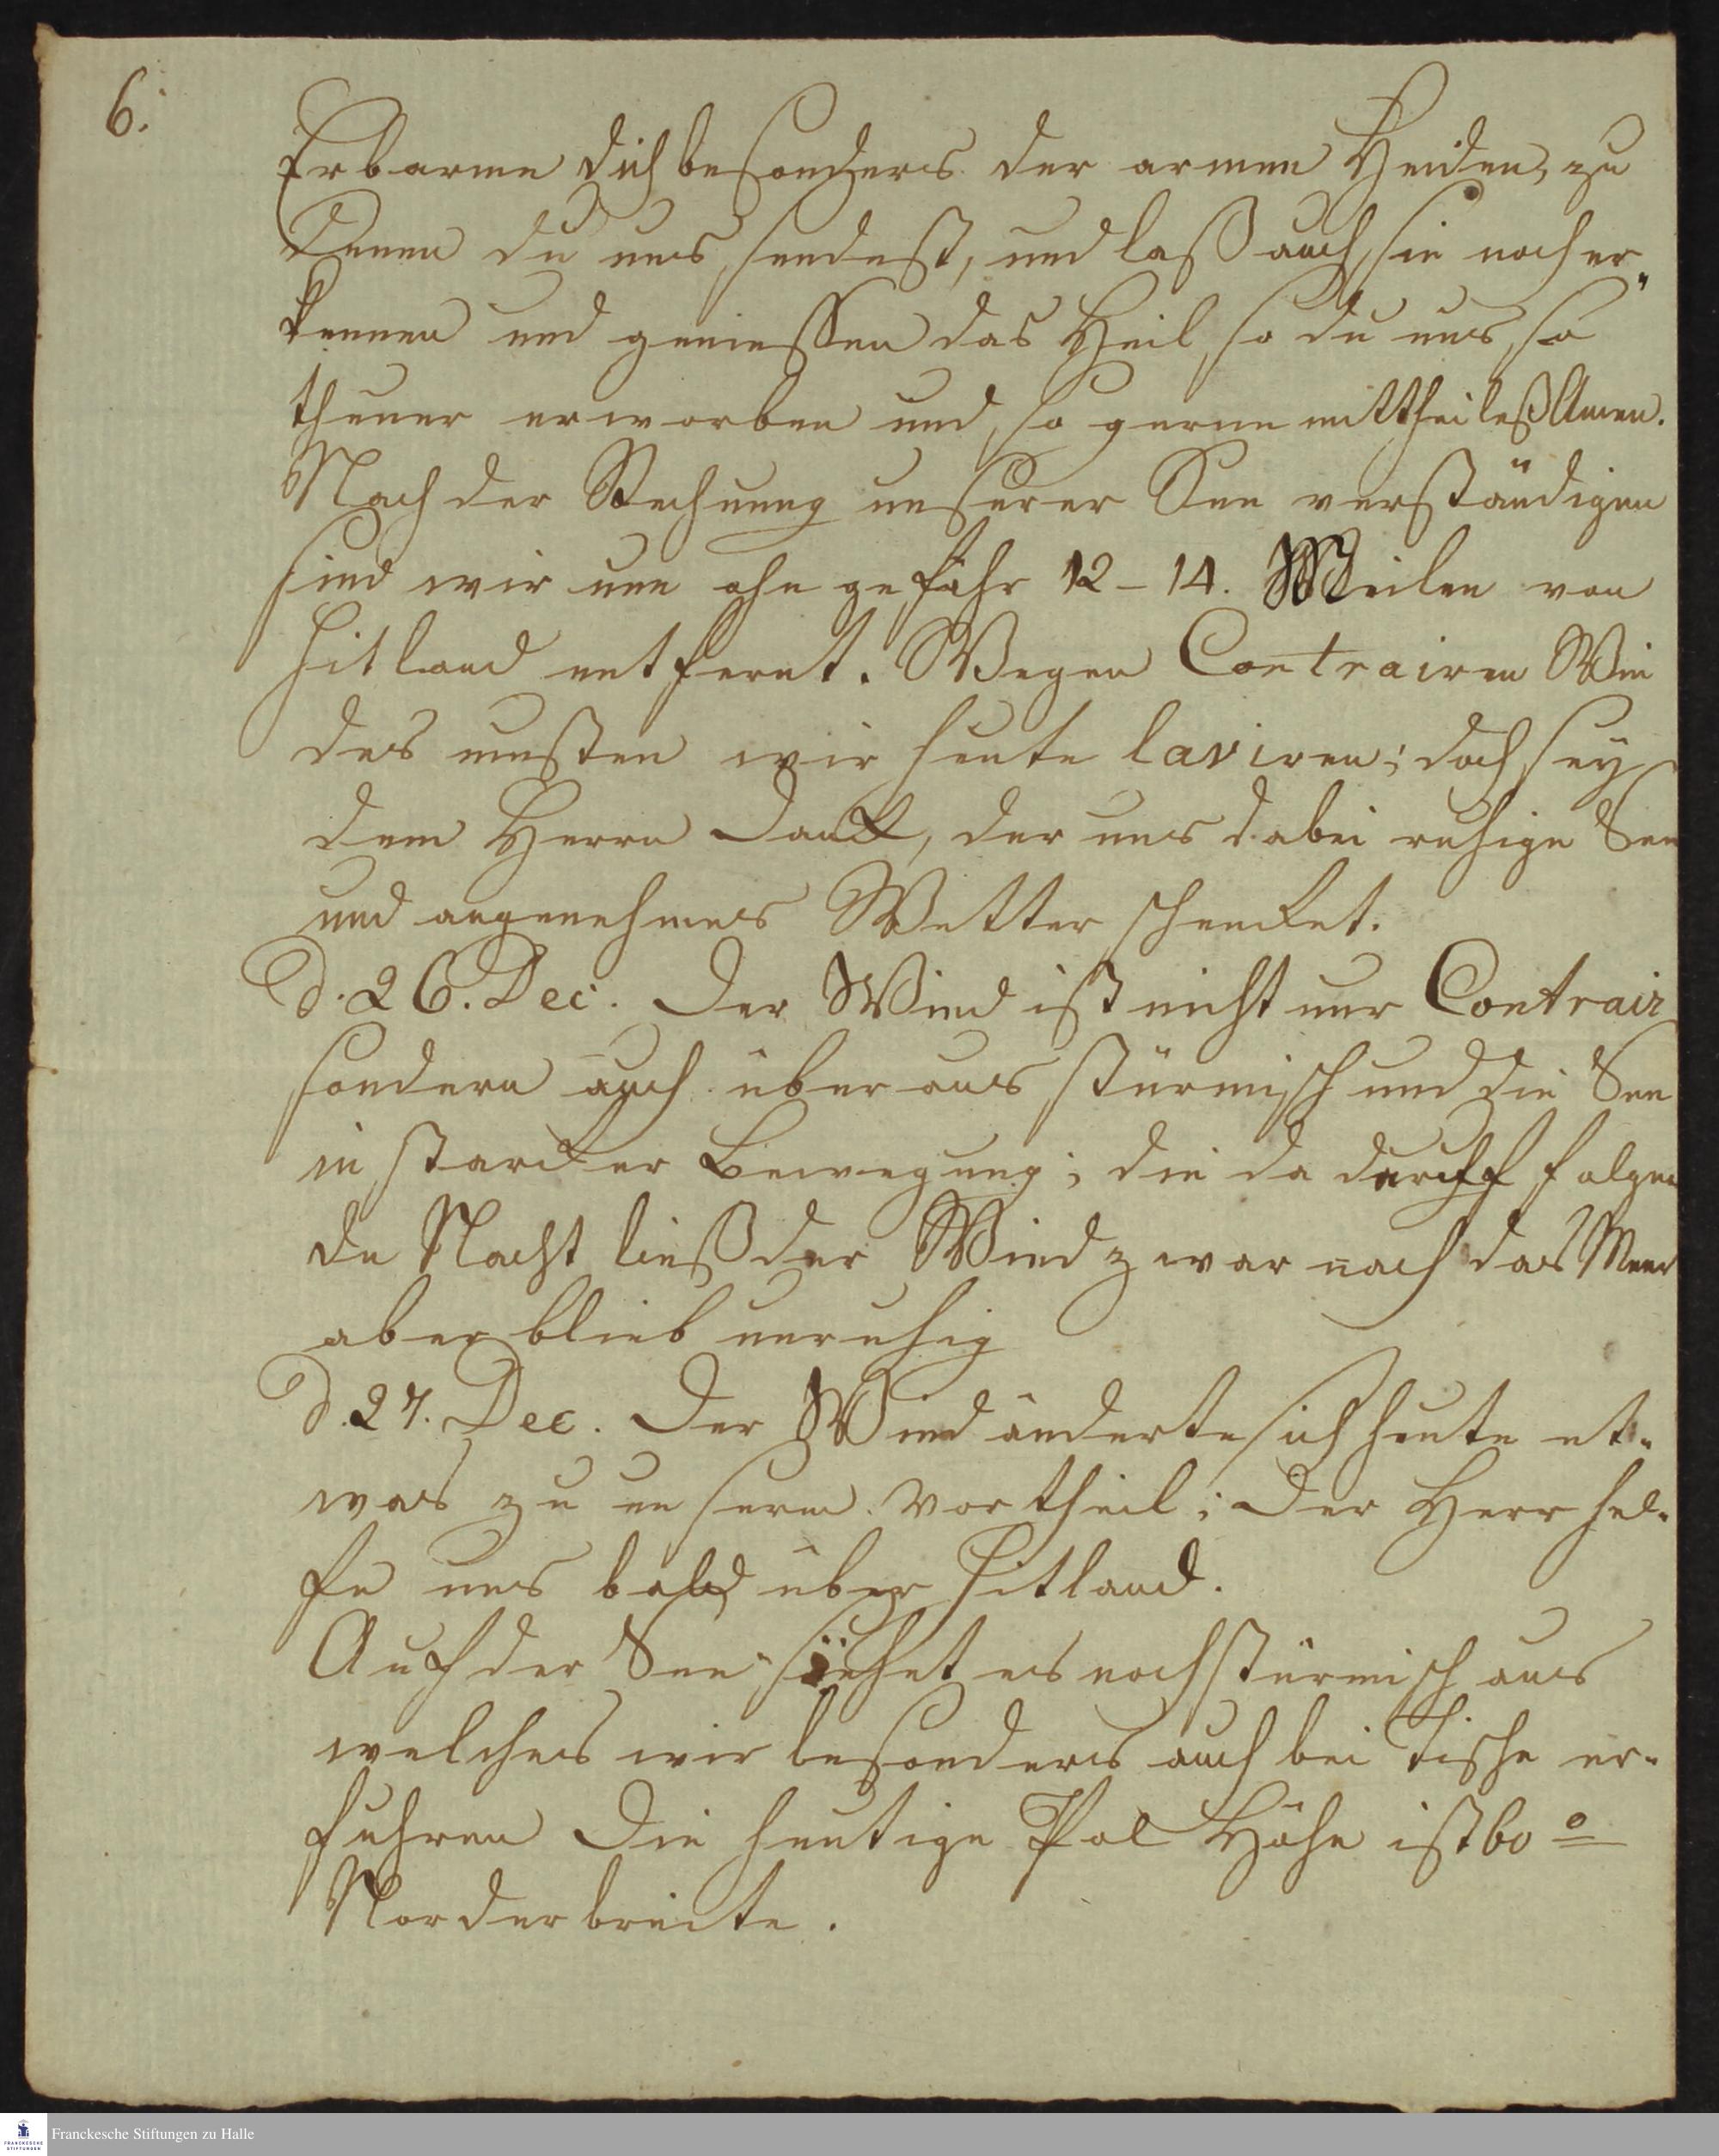 6.
Erbarme dich besonders der armen Heiden, zu
denen du uns sendest, und laß auch sie noch er„
kennen und geniessen das Heil, so du uns so
theuer erworben und so gerne mittheilest Amen.
Nach der Rechnung unserer See verständigen
sind wir nun ohn gefähr 12 - 14. Meilen von
Hitland entfernt. Wegen Contrairen Win
des musten wir heute laviren; doch sey
dem Herrn Danck, der uns dabei ruhige See
und angenehmes Wetter schencket.
d. 26. Dec. Der Wind ist nicht nur Contrair
sondern auch überaus stürmisch und die See
in starcker Bewegung; die da darauff folgen
de Nacht ließ der Wind zwar nach das Meer
aber blieb unruhig
d. 27. Dec. Der Wind änderte sich heute et-
was zu unserm Vortheil; Der Herr hel-
fe uns bald über Hitland.
Auf der See siehet es noch stürmisch aus
welches wir besonders auch bei Tische er-
fuhren Die heutige Pol Höhe ist 60°
Norderbreite.
Franckesche Stiftungen zu Halle
FRANCKESCHE
STIFTUNGEN